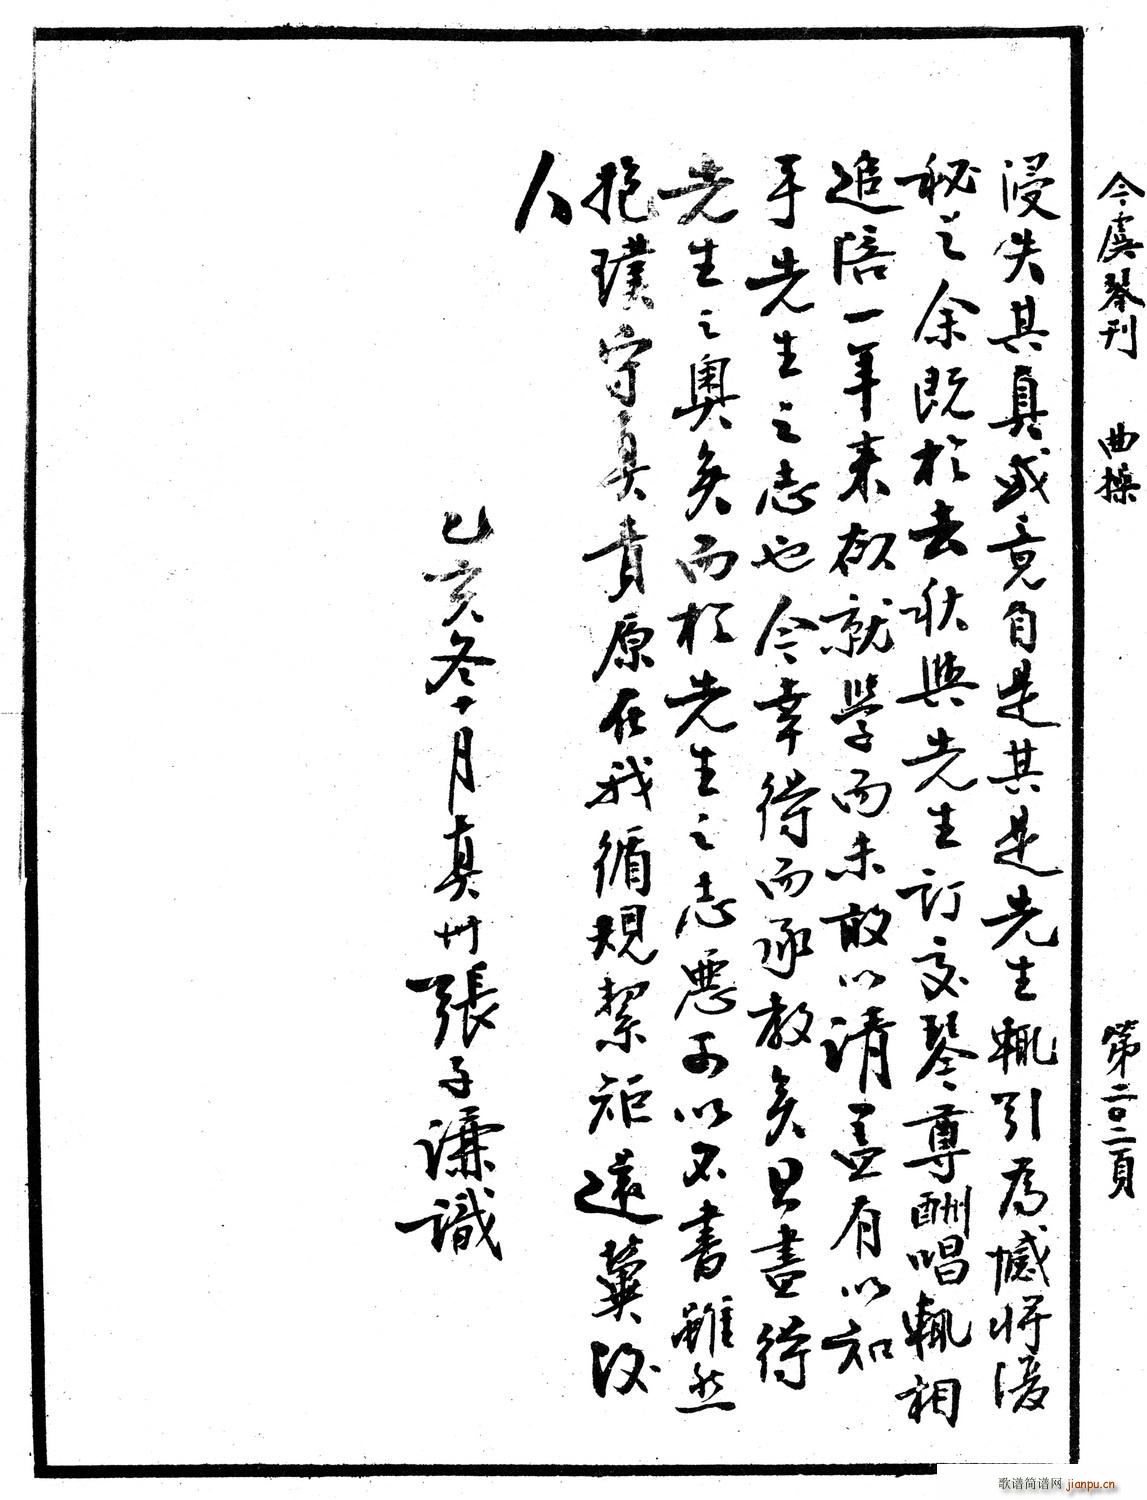 今虞琴刊 曲操 第二〇二頁
浸失其真或竟自是其是先生輒引為憾將湲
秘之余既於去秋與先生訂交琴尊酬唱輒相
追陪一年来欲就學而未敢以請盖有以知
乎先生之志也今幸得而承教矣且盡得
先生之奥矣而於先生之志悪可以不書雖然
抱璞守真責原在我循規絜矩還冀後
人
乙亥冬十月真州張子謙識
歌谱简谱网 jianpu.cn